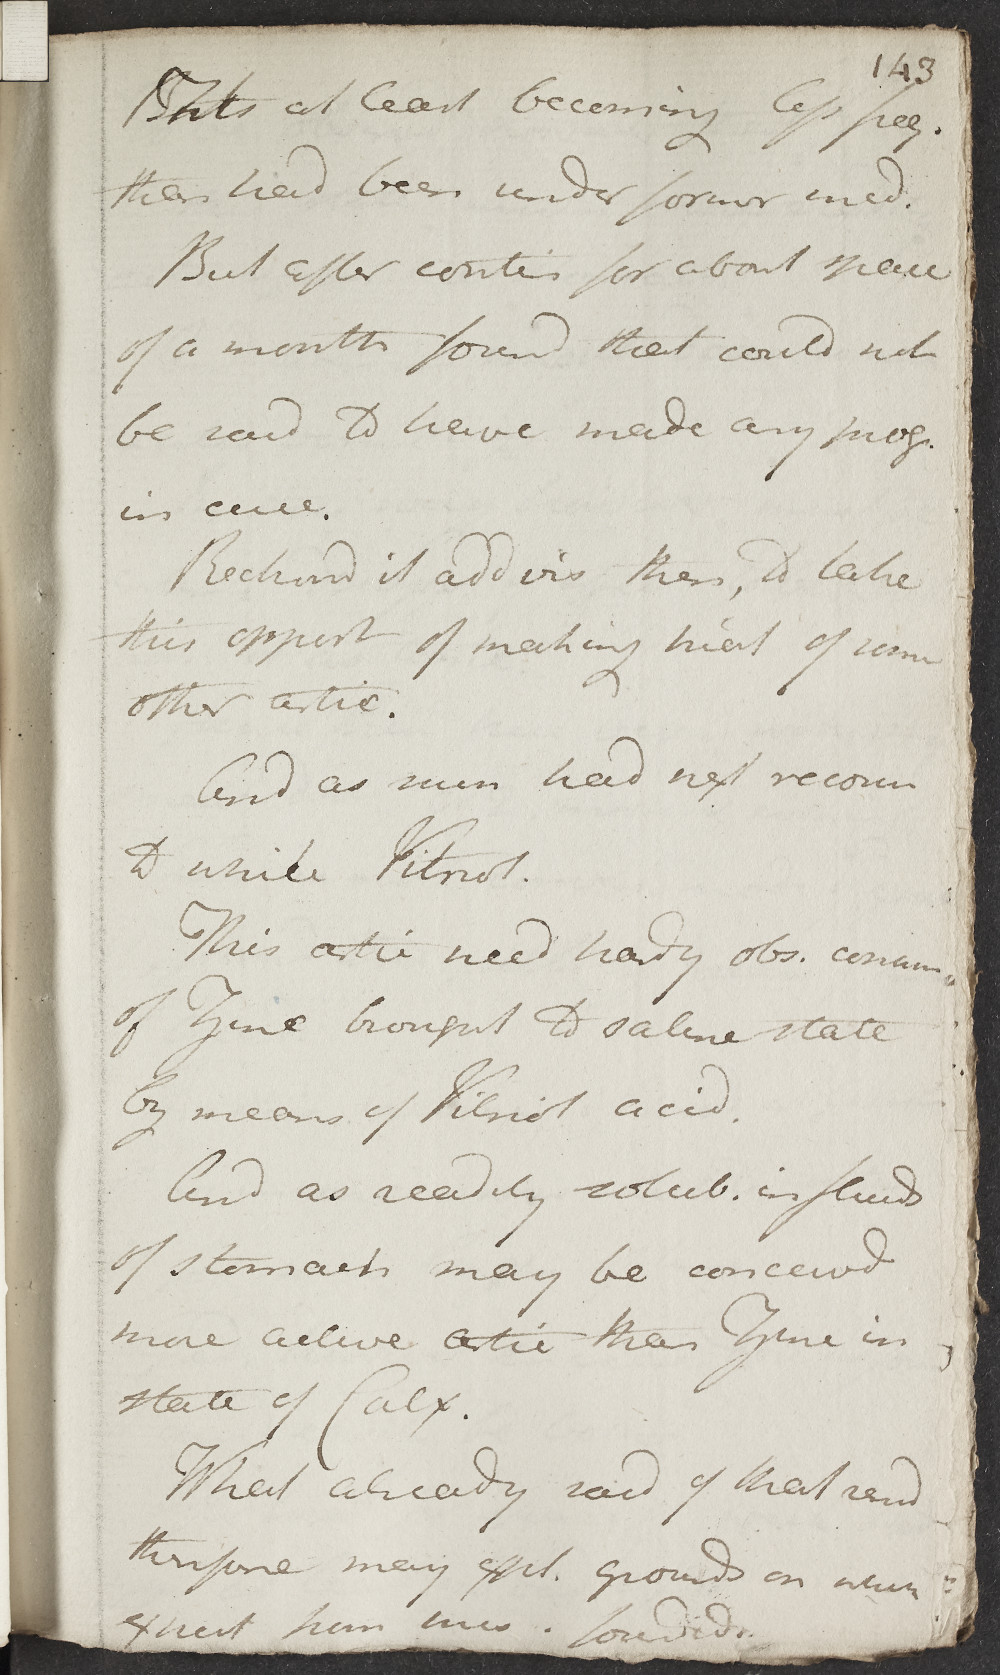 143
Fits at least becoming less freq.
then had been under former med.
But after contin for about space
of a month found that could not
be said to have made any prog.
in cure.
Reckond it advis then, to take
this opport of making trial of some
other artic.
And as such had next recour
to white Vitriol.
This artic need hardly obs. consis
of Zinc brought to saline state
by means of Vitriol acid.
And as readily solub. in fluids
of stomach may be conceivd
more active artic than Zinc in
state of Calx.
What already said of that rend
therefore may expl. grounds on which
expect from this . founded.